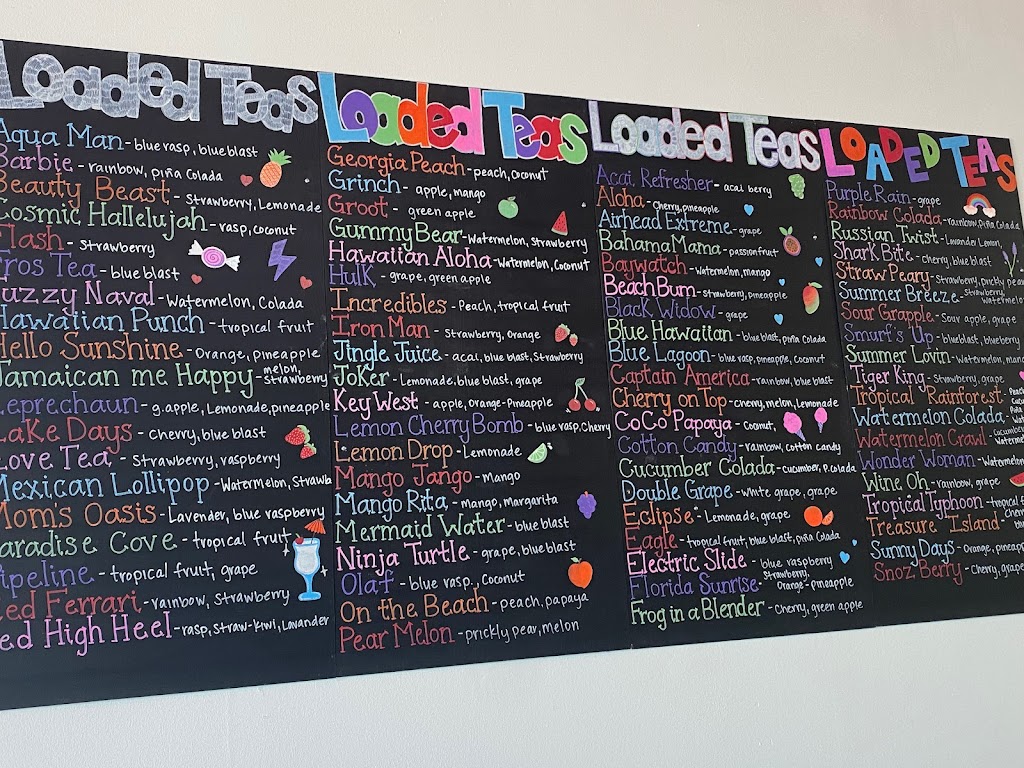 Loaded Teas
Aqua Man - blue rasp, blue blast
Barbie - rainbow, piña Colada
Beauty Beast - Strawberry, Lemonade
Cosmic Hallelujah - rasp, coconut
Flash - Strawberry
Eros Tea - blue blast
Fuzzy Naval - Watermelon, Colada
Hawaiian Punch - tropical fruit
Hello Sunshine - Orange, pineapple
Jamaican me Happy - melon, strawberry
Leprechaun - g.apple, Lemonade, pineapple
Lake Days - Cherry, blue blast
Love Tea - Strawberry, raspberry
Mexican Lollipop - Watermelon, Strawb
Mom's Oasis - Lavender, blue raspberry
Paradise Cove - tropical fruit
Pipeline - tropical fruit, grape
Red Ferrari - rainbow, Strawberry
Red High Heel - rasp, straw-kiwi, Lavander
Loaded Teas
Georgia Peach - peach, coconut
Grinch - apple, mango
Groot - green apple
Gummy Bear - Watermelon, Strawberry
Hawaiian Aloha - Watermelon, Coconut
Hulk - grape, green apple
Incredibles - Peach, tropical fruit
Iron Man - Strawberry, Orange
Jingle Juice - acai, blue blast, Strawberry
Joker - Lemonade, blue blast, grape
Key West - apple, Orange-Pineapple
Lemon Cherry Bomb - blue rasp, Cherry
Lemon Drop - Lemonade
Mango Jango - mango
Mango Rita - mango, margarita
Mermaid Water - blue blast
Ninja Turtle - grape, blue blast
Olaf - blue rasp., Coconut
On the Beach - peach, papaya
Pear Melon - prickly pear, melon
Loaded Teas
Acai Refresher - acai berry
Aloha - Cherry, pineapple
Airhead Extreme - grape
Bahama Mama - passionfruit
Baywatch - Watermelon, mango
Beach Bum - Strawberry, pineapple
Black Widow - grape
Blue Hawaiian - blue blast, piña Colada
Blue Lagoon - blue rasp, pineapple, coconut
Captain America - rainbow, blue blast
Cherry on Top - cherry, melon, Lemonade
CoCo Papaya - Coconut,
Cotton Candy - rainbow, cotton candy
Cucumber Colada - cucumber, P.Colada
Double Grape - White grape, grape
Eclipse - Lemonade, grape
Eagle - Tropical fruit, blue blast, piña Colada
Electric Slide - blue raspberry
Florida Sunrise - Strawberry, Orange-pineapple
Frog in a Blender - Cherry, green apple
LOADED TEAS
Purple Rain - grape
Rainbow Colada - rainbow, piña Colada
Russian Twist - Lavander, Lemon,
Shark Bite - cherry, blue blast
Straw Peary - Strawberry, prickly pear
Summer Breeze - Strawberry, Watermelon
Sour Grapple - Sour apple, grape
Smurf's Up - blueblast, blueberry
Summer Lovin - Watermelon, mang
Tiger King - Strawberry, grape
Tropical Rainforest -
Watermelon Colada -
Watermelon Crawl -
Wonder Woman - Watermelon
Wine Oh - rainbow, grape
Tropical Typhoon - tropical
Treasure Island -
Sunny Days - Orange, pineapp
Snoz Berry - Cherry, grape